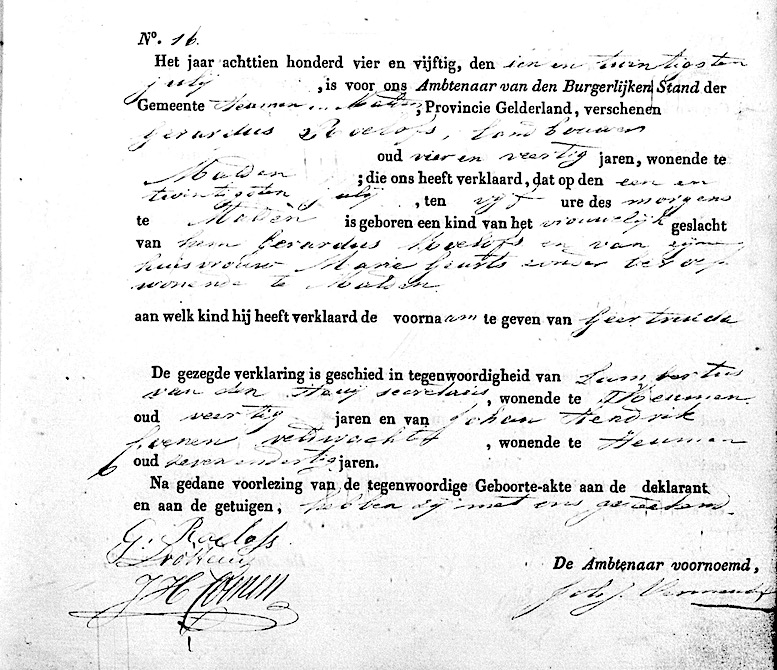 No. 16.
Het jaar achttien honderd vier en vijftig, den een en twintigsten
july , is voor ons Ambtenaar van den Burgerlijken Stand der
Gemeente Heumen en Malden ; Provincie Gelderland, verschenen
Gerardus Roelofs, landbouwer
oud vier en veertig jaren, wonende te
Malden ; die ons heeft verklaard, dat op den een en
twintigsten july , ten vijf ure des morgens
te Malden is geboren een kind van het vrouwelijk geslacht
van hem Gerardus Roelofs en van zijne
huisvrouw Maria Geurts zonder beroep
wonende te Malden
aan welk kind hij heeft verklaard de voornaam te geven van Geertruida
De gezegde verklaring is geschied in tegenwoordigheid van Lambertus
van den Heuij secretaris , wonende te Heumen
oud veertig jaren en van Johan Hendrik
veldwachter , wonende te Heumen
oud jaren.
Na gedane voorlezing van de tegenwoordige Geboorte-akte aan de deklarant
en aan de getuigen, hebben zij met ons geteekend.
G. Roelofs
De Ambtenaar voornoemd,
J H